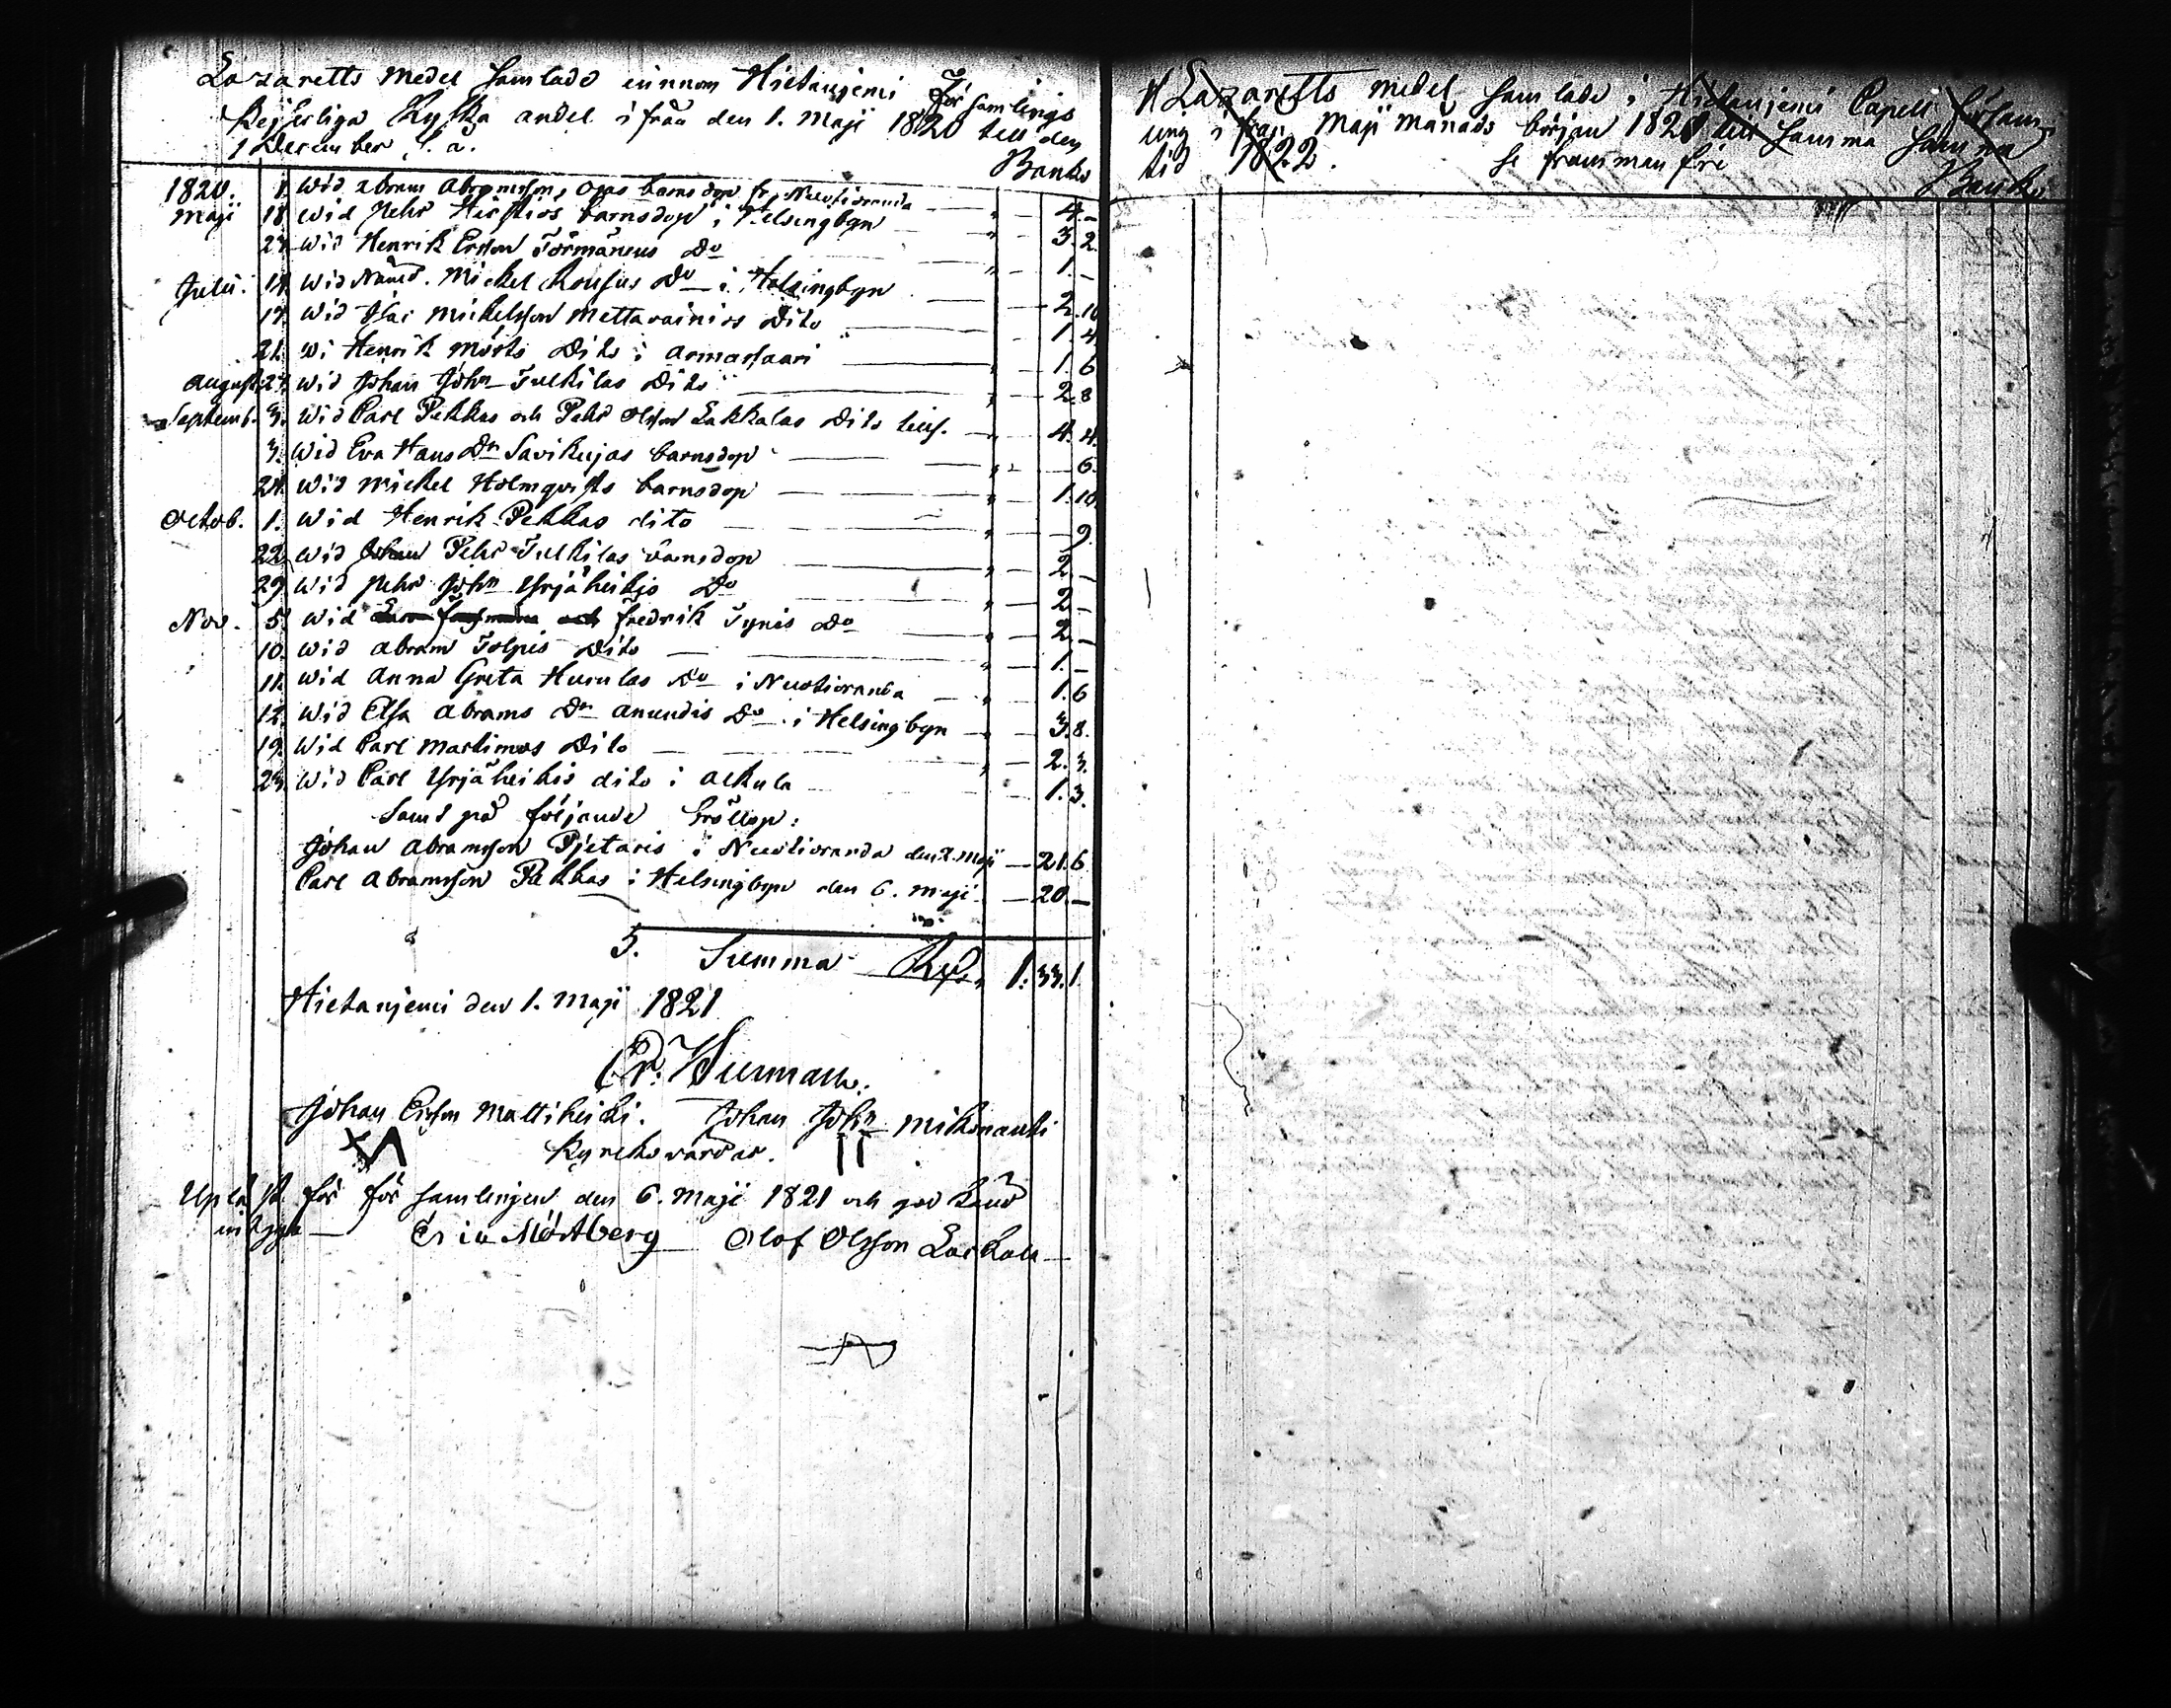 Lazaretts Medel Samlade innom Hietaniemi Församlings
Kejserliga Ryska andel ifrån den 1. Maji 1820 till den
1 December s. å.
Banko
1820. Maji 1. Wid Abram Abramsson Ojas barnsdop fr. Nuotioranda — 4.–
18 Wid Pehr Hirstios barnsdop i Helsingbyn — 3.2.
24. Wid Henrik Ersson Törmänens Do — 1.–
Julii. 14. Wid Nämd. Mickel Kousus Do i Helsingbyn — 2.10
17. Wid Isac Mickelsson Mettavainios Dito — 1.4
21. Wi Henrik Mörts Dito i Armassaari — 1.6
August. 27. Wid Johan Johsn Tulkilas Dito — 2.8
Septemb. 3. Wid Carl Pekkas och Pehr Olsson Lakkalas Dito tills. — 4.4.
3. Wid Eva Hans Dr Savikujas barnsdop — 6.
24. Wid Mickel Holmqvists barnsdop — 1.10.
Octob. 1. Wid Henrik Pekkas dito — 9.
22. Wid Johan Pehr Tulkilas barnsdop — 2.–
29. Wid Pehr Johsn Yrjäheikis Do — 2.–
Nov. 5. Wid och Fredrik Tynis Do — 2.–
10. Wid Abram Tolpis Dito — 1.–
11. Wid Anna Greta Hurulas Do i Nuotioranda — 1.6
12. Wid Elsa Abrams Dr Anundis Do i Helsingbyn — 3.8.
19. Wid Carl Martimos Dito — 2.3.
23. Wid Carl Yrjäheikis dito i Alkula — 1.3.
Samt på följande Bröllop:
Johan Abramsson Pjetaris i Nuotioranda den 2. Maji — 21.6
Carl Abramsson Pekkas i Helsingbyn den 6. Maji — 20.–
S. Summa Rdr 1.33.1.
Hietaniemi den 1. Maji 1821
Johan Ersson Mattiheiki. Johan Johsn Mikonauti
Kyrckovärdar.
Uplä st för för samlingen den 6. Maji 1821 och god känd
intyga — Eric Mörtberg Olof Olsson Lackala —
H Lazaretts Medel Samlade i Hietaniemi Capell församl
ing i från Maji Månads början 1821 till samma samma
tid 1822. se framman före
Banko.